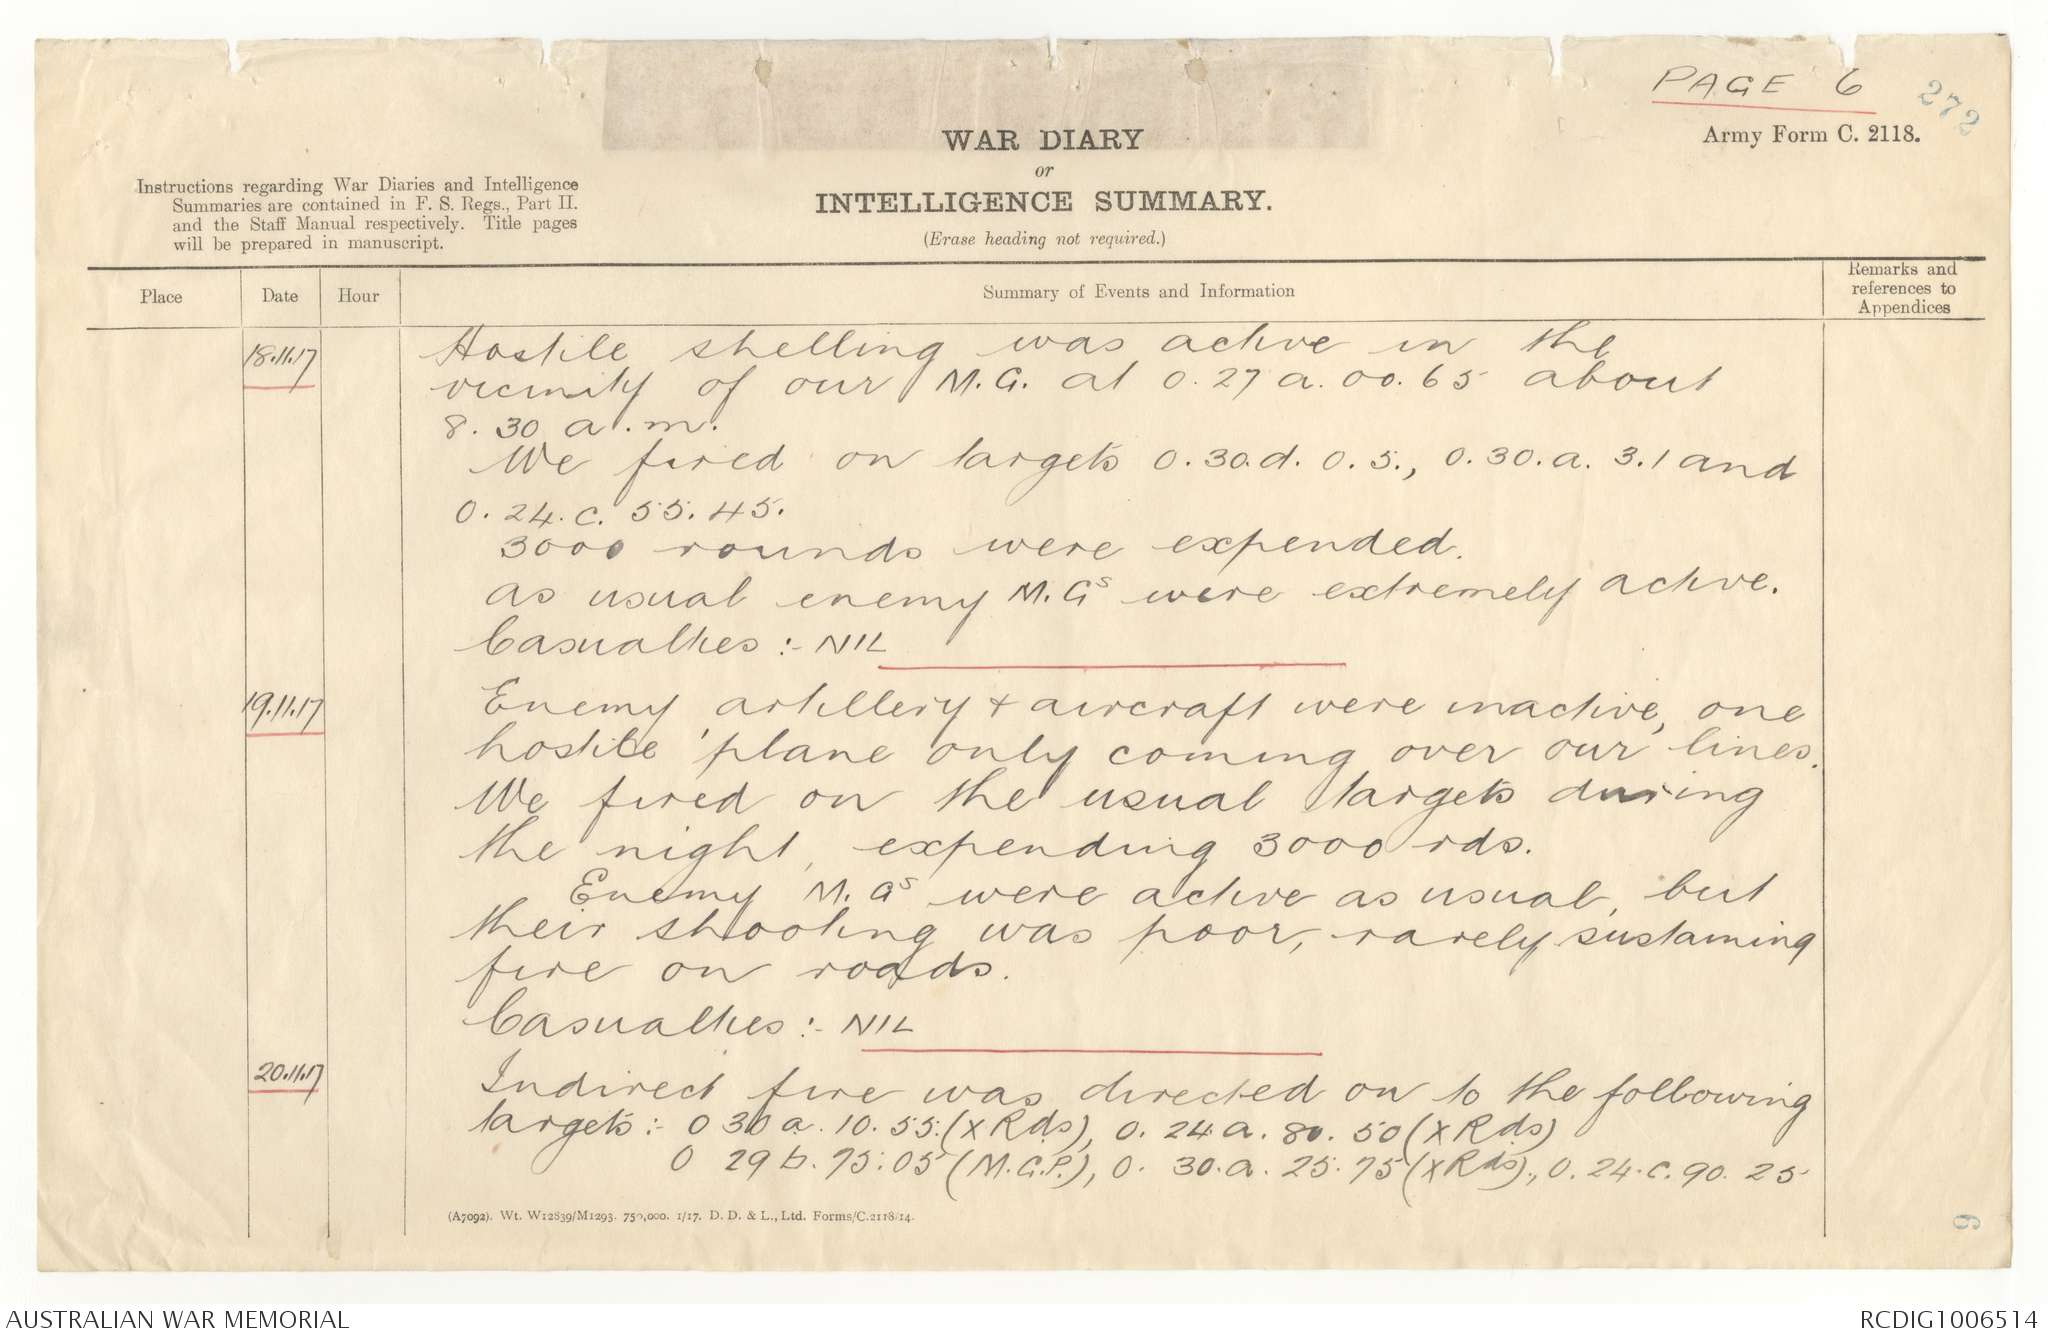 PAGE 6
272
Army Form C. 2118.
WAR DIARY
or
INTELLIGENCE SUMMARY.
(Erase heading not required.)
Instructions regarding War Diaries and Intelligence
Summaries are contained in F. S. Regs., Part II.
and the Staff Manual respectively. Title pages
will be prepared in manuscript.
Place
Date
Hour
Summary of Events and Information
Remarks and
references to
Appendices
18.11.17
Hostile shelling was active in the
vicinity of our M.G. at O.27 a.00.65 about
8.30 a.m.
We fired on targets O.30.d.0.5., O.30.a.3.1 and
O.24.c.55.45.
3000 rounds were expended.
As usual enemy M.Gs were extremely active.
Casualties :- NIL
19.11.17
Enemy artillery + aircraft were inactive, one
hostile 'plane only coming over our lines.
We fired on the usual targets during
the night, expending 3000 rds.
Enemy M.Gs were active as usual, but
their shooting was poor, rarely sustaining
fire on roads.
Casualties :- NIL
20.11.17
Indirect fire was directed on to the following
targets :- O 30 a. 10.55. (X Rds), O.24.a.80.50 (X Rds)
O 29 b.75.05 (M.G.P.), O.30.a.25.75 (X Rds)., O.24.c.90.25
(A7092). Wt. W12839/M1293. 750,000. 1/17. D. D. & L., Ltd. Forms/C.2118/14.
6
AUSTRALIAN WAR MEMORIAL
RCDIG1006514